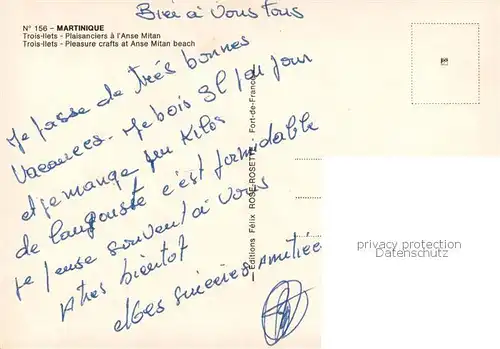 Bien à Vous tous
N° 156 – MARTINIQUE
Trois-Ilets - Plaisanciers à l'Anse Mitan
Trois-Ilets - Pleasure crafts at Anse Mitan beach
Je passe de très bonnes
Vacances. Je bois 3l / au jour
et je mange un Kilos
de langouste c'est formidable
je pense souvent à vous
A très bientôt
Mes sincères amitiés
Editions Félix ROSE-ROSETTE - Fort-de-France
privacy protection
Datenschutz